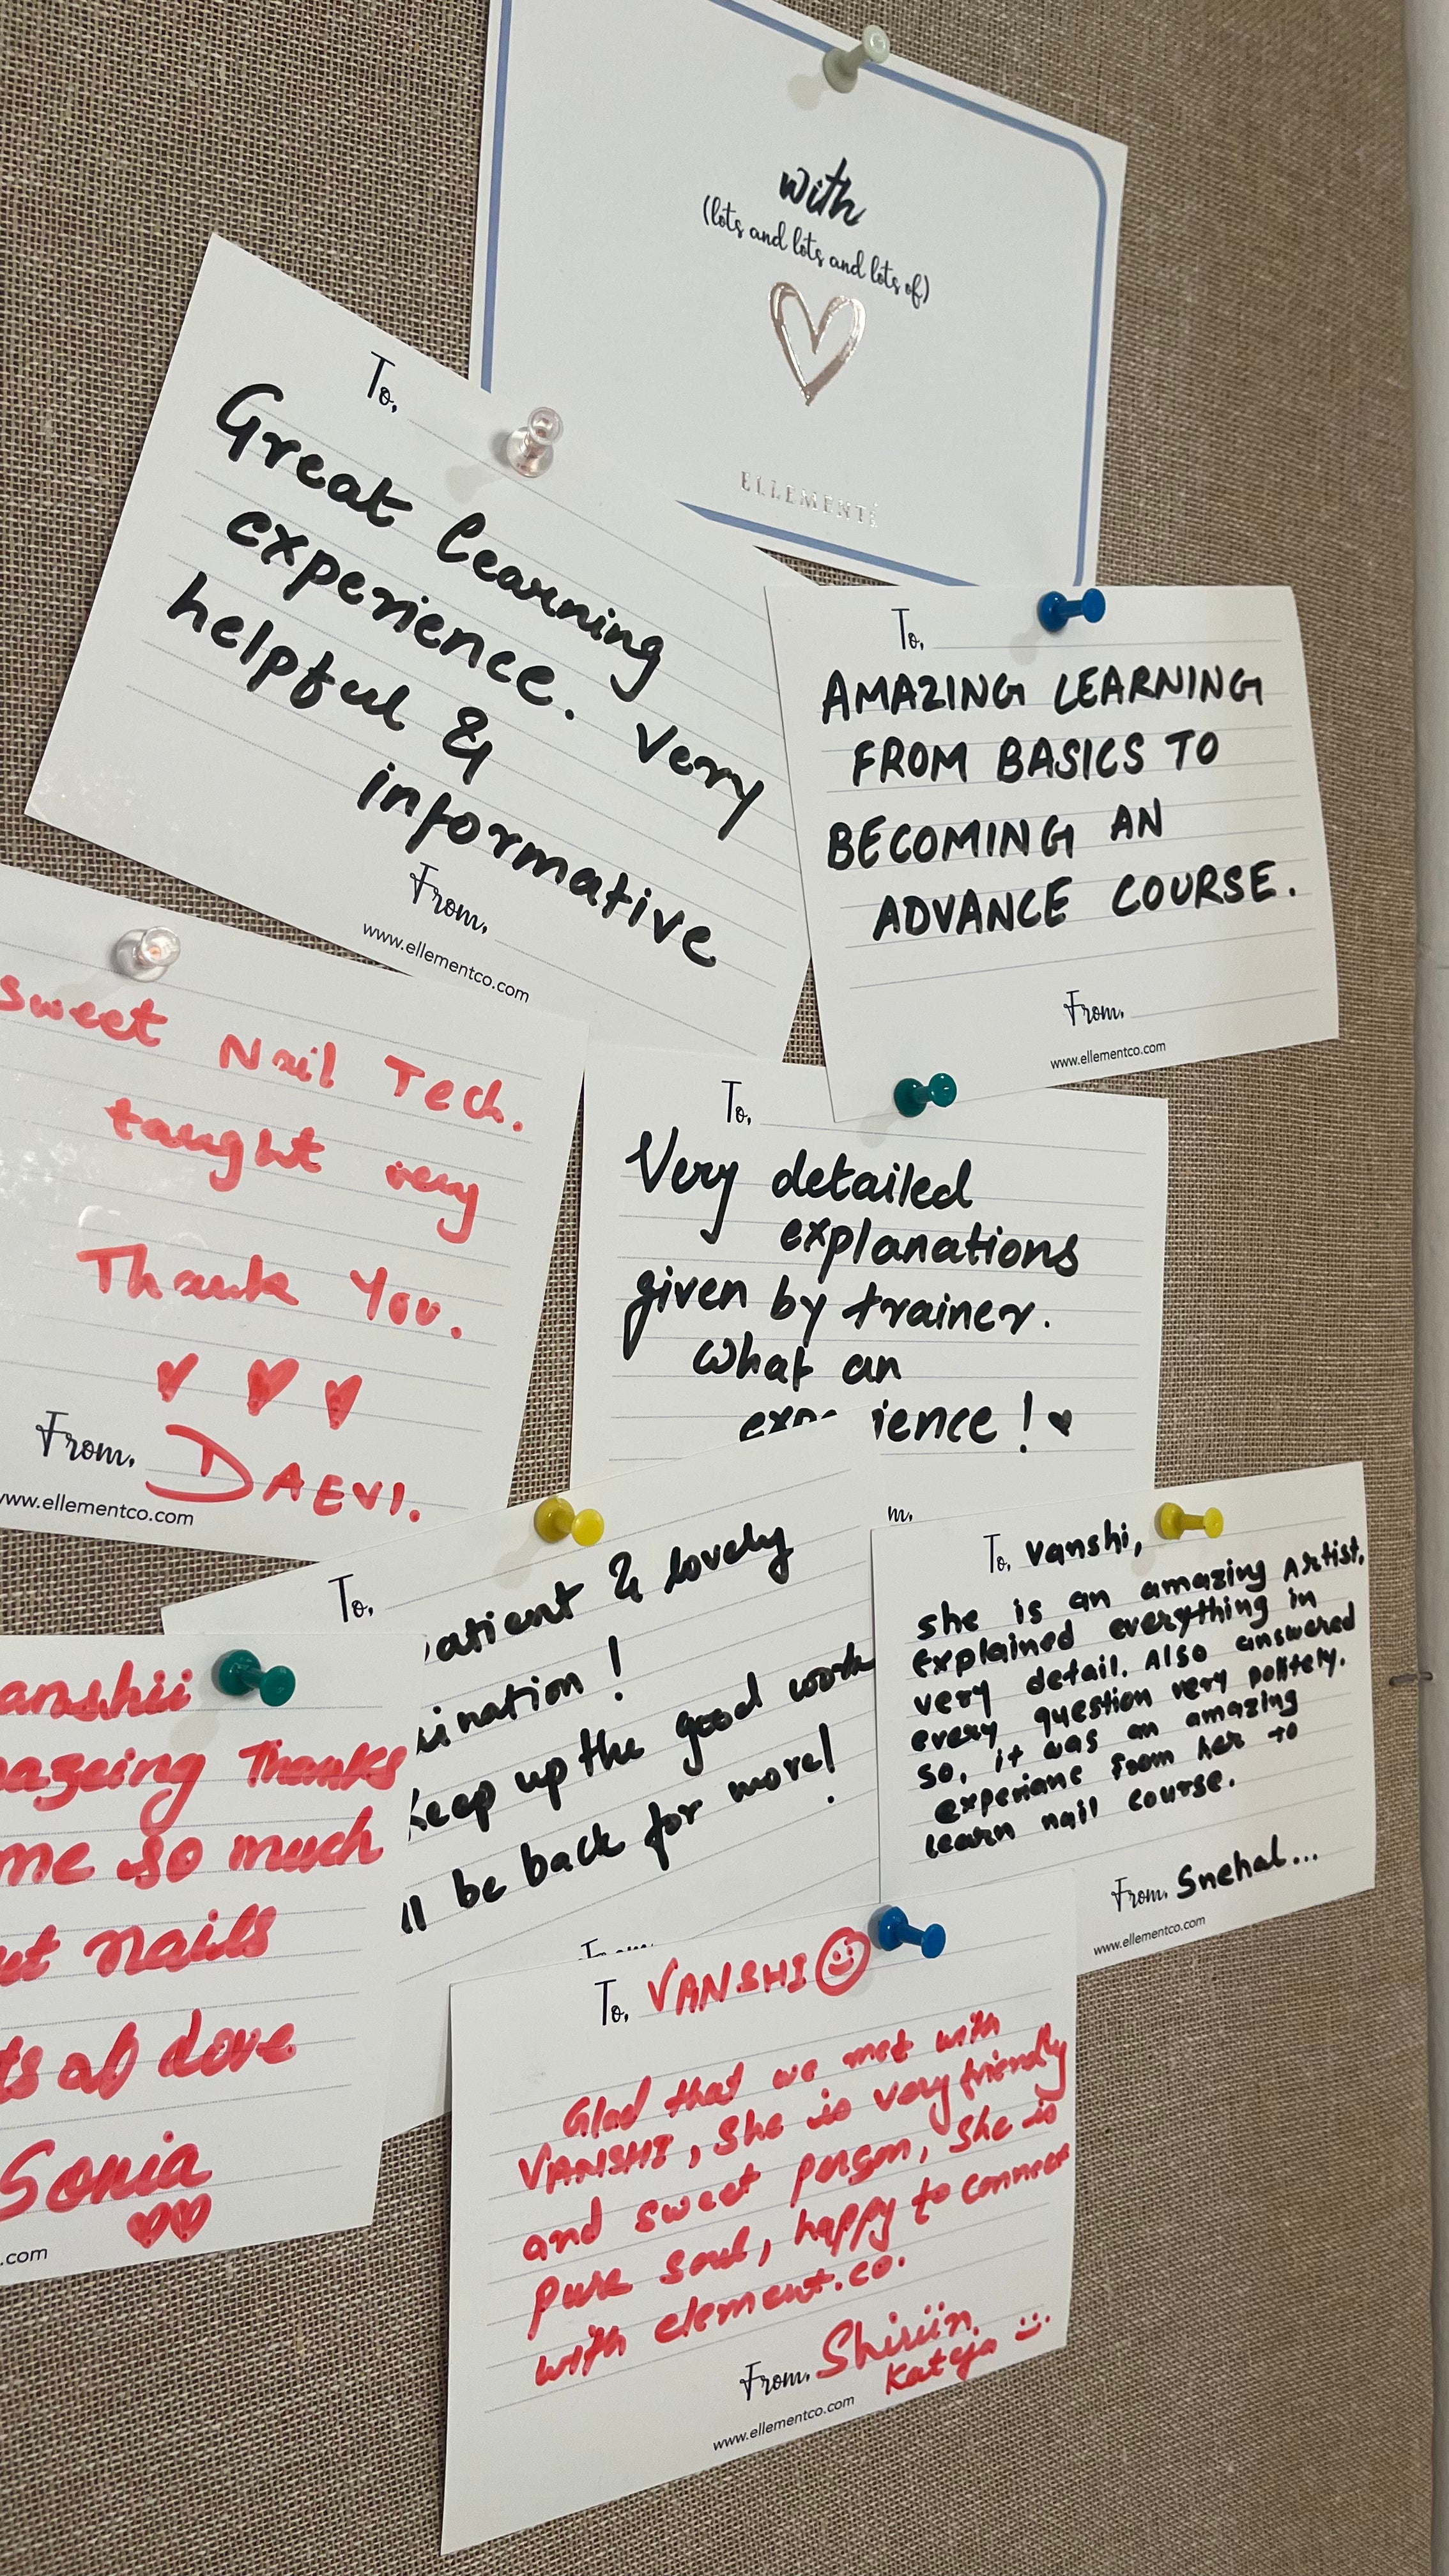 with
(lots and lots and lots of)
ELLEMENTÉ
To,
Great learning
experience. Very
helpful &
informative
From,
www.ellementco.com
To,
AMAZING LEARNING
FROM BASICS TO
BECOMING AN
ADVANCE COURSE.
From,
www.ellementco.com
sweet Nail Tech.
taught very
Thank You.
From, DAEVI.
www.ellementco.com
To,
Very detailed
explanations
given by trainer.
What an
ience !
m,
To,
atient & lovely
ination !
Keep up the good work
ll be back for more!
To, Vanshi,
she is an amazing Artist.
explained everything in
very detail. Also answered
every question very politely.
so, it was an amazing
experians from her to
learn nail course.
From, Snehal...
www.ellementco.com
anshii
azeing Thanks
me so much
ut nails
ts of love
Sonia
.com
To, VANSHI
Glad that we met with
VANSHI, She is very friendly
and sweet person, She is
pure soul, happy to connect
with element.co.
From, Shiriin
Kateja
www.ellementco.com